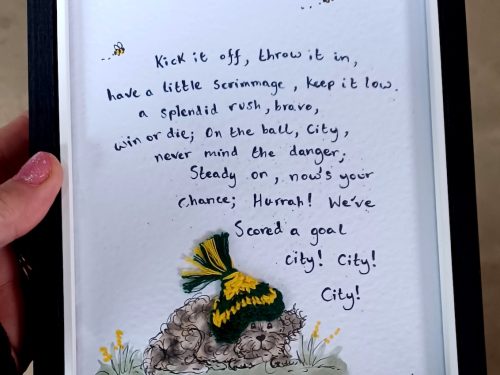 Kick it off, throw it in,
have a little scrimmage, keep it low.
a splendid rush, bravo,
win or die; On the ball, City,
never mind the danger;
Steady on, now's your
chance; Hurrah! We've
Scored a goal
City! City!
City!